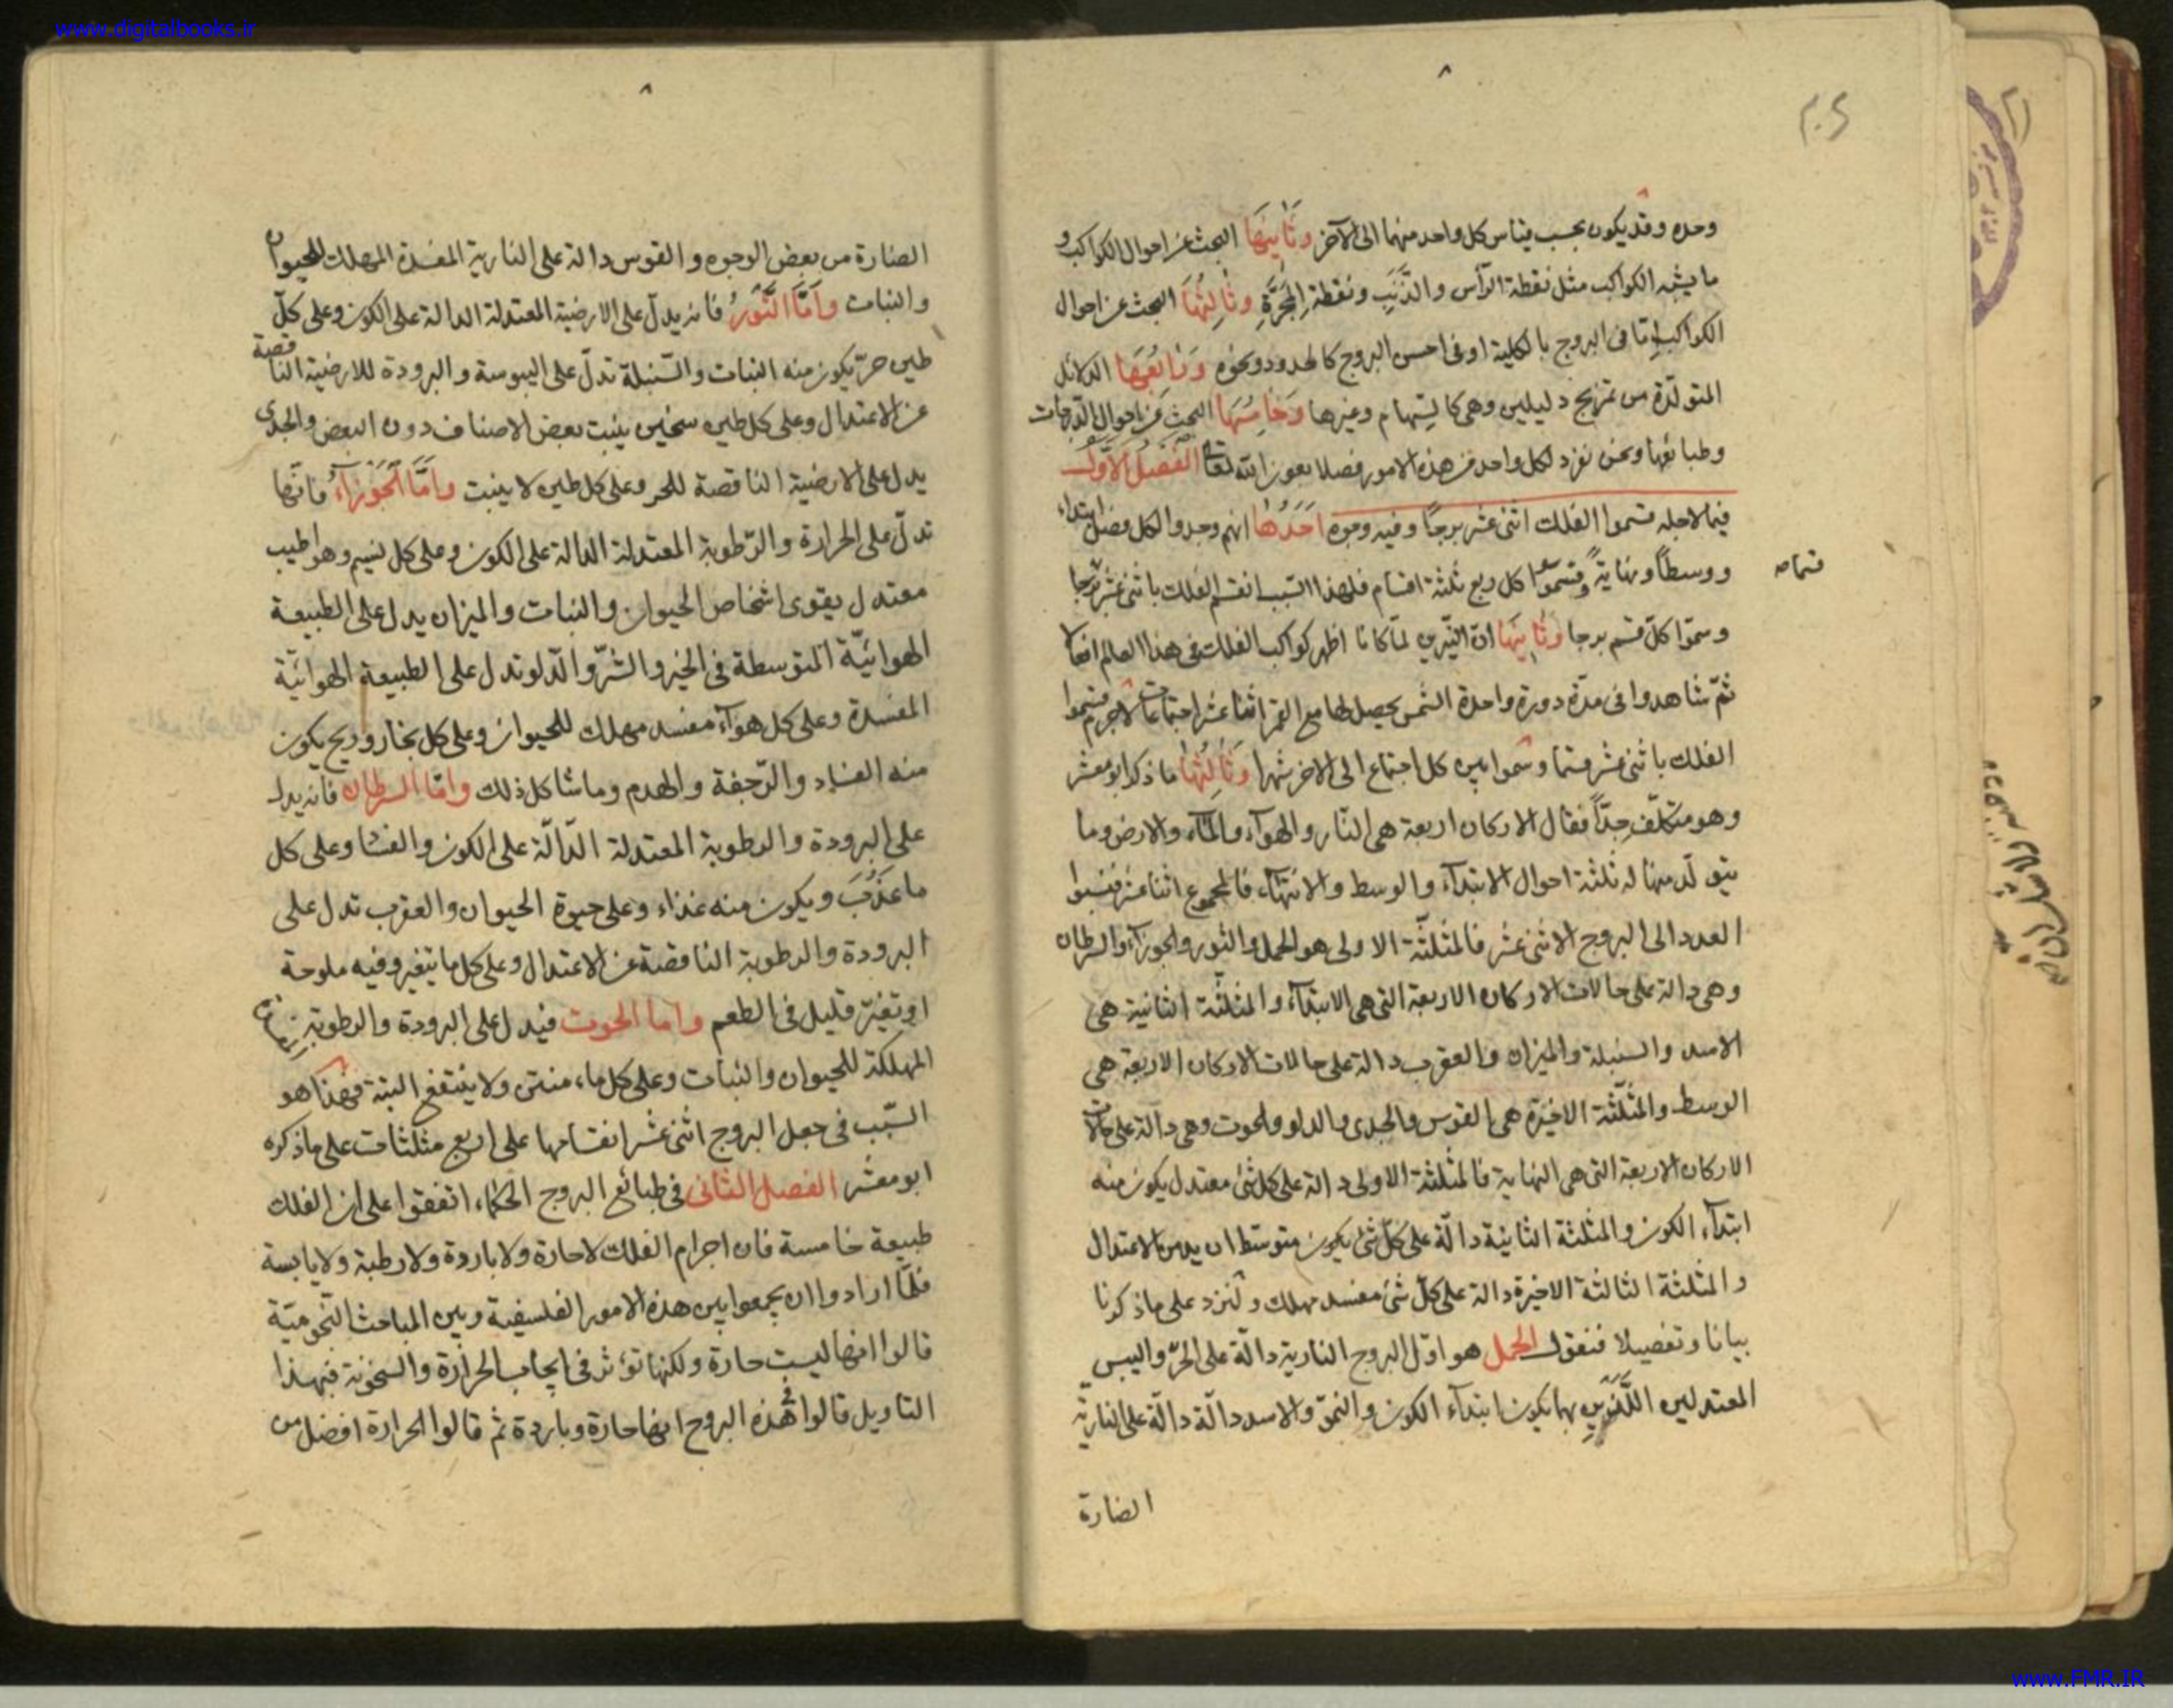 www.digitalbooks.ir
۸
وحده وقد يكون بحسب قياس كل واحد منهما الى الآخر وثانيها البحث عن احوال الكواكب و
ما يشبه الكواكب مثل نقطة الرأس والذنب ونقطة المجرّة وثالثها البحث عن احوال
الكواكب امّا فى البروج بالكلية او فى البروج كالحدود ونحوه ورابعها الدلائل
المتولّدة من تمزيج دليلين وهى كالسهام وغيرها وخامسها البحث عن احوال الدرجات
وطبائعها ونحن نفرد لكل واحد من هذه الامور فصلا بعون الله تعالى الفصل الاوّل
فيما لاجله قسموا الفلك اثنى عشر برجا وفيه وجوه احدها انهم وجدوا لكل فصل ابتداء
ووسطاً ونهايةً وقسّموا كل ربع ثلثة اقسام فلهذا السّبب انقسم الفلك باثنى عشر برجا
وسمّوا كلّ قسم برجا وثانيها انّ النيّرين لمّا كانا اظهر كواكب الفلك فى هذا العالم افعالا
ثمّ شاهدوا فى مدّة دورة واحدة الشمس يحصل لها مع القمر اثنا عشر اجتماعات لاجرم قسموا
الفلك باثنى عشر قسما وسمّوا بين كل اجتماع الى الاخر شهرا وثالثها ما ذكر ابو معشر
وهو متكلّف جدّاً فقال الاركان اربعة هى النّار والهوآء والمآء والارض وما
يتولّد منها له ثلثة احوال الابتدآء والوسط والانتهآء فالمجموع اثنا عشر فنسبوا
العدد الى البروج الاثنى عشر فالمثلّثة الاولى هو الحمل والثور والجوزآء والسرطان
وهى دالة على حالات الاركان الاربعة التى هى الابتدآء والمثلّثة الثانية هى
الاسد والسنبلة والميزان والعقرب دالة على حالات الاركان الاربعة هى
الوسط والمثلّثة الاخيرة هى القوس والجدى والدلو والحوت وهى دآلة على حالات
الاركان الاربعة التى هى النهاية فالمثلثة الاولى دالة على كل شئ معتدل يكون منه
ابتدآء الكون والمثلثة الثانية دالّة على كلّ شئ يكون متوسّطا الاعتدال
والمثلثة الثالثة الاخيرة دالة على كلّ شئ مفسد مهلك ولنزد على ما ذكرنا
بيانا وتفصيلا فنقول الحمل هو اوّل البروج النارية دالّة على الحرّ واليبس
المعتدلين اللّذين بها يكون ابتدآء الكون والنموّ والاسد دالّة دالّة على النارية
الضارة
۸
الضارة من بعض الوجوه والقوس دالة على النارية المفسدة المهلك للحيوان
والنبات وامّا الثّور فانه يدلّ على الارضية المعتدلة الدالة على الكون وعلى كلّ
طين حرّ يكون منه النبات والسّنبلة تدلّ على اليبوسة والبرودة للارضية الناقصة
عن الاعتدال وعلى كل طين سخين ينبت بعض الاصناف دون البعض والجدى
يدل على الارضية الناقصة للحر وعلى كل طين لا ينبت وامّا الجوزآء فانّها
تدلّ على الحرارة والرّطوبة المعتدلة الدالة على الكون وعلى كل نسيم وهوا طيب
معتدل يقوى اشخاص الحيوان والنبات والميزان يدل على الطبيعة
الهوائيّة المتوسطة فى الخير والشرّ والدلو تدل على الطبيعة الهوائيّة
المفسدة وعلى كل هوآء مفسد مهلك للحيوان وعلى كل بخار وريح يكون
منه الفساد والرّجفة والهدم وما شاكل ذلك وامّا السرطان فانه يدل
على البرودة والرطوبة المعتدلة الدّالّة على الكون والنشا وعلى كل
ما عذب ويكون منه غذاء وعلى حيوة الحيوان والعقرب تدل على
البرودة والرطوبة الناقصة عن الاعتدال وعلى كل ما يتغير وفيه ملوحة
او تغيّر قليل فى الطعم واما الحوت فيدل على البرودة والرطوبة
المهلكة للحيوان والنبات وعلى كل ماء منتن ولا ينتفع البتة فهذا هو
السّبب فى جعل البروج اثنى عشر انقسامها على اربع مثلثات على ما ذكره
ابو معشر الفصل الثانى فى طبائع البروج الحكماء اتفقوا على ان الفلك
طبيعة خامسة فان اجرام الفلك لا حارة ولا باردة ولا رطبة ولا يابسة
فلمّا ارادوا ان يجمعوا بين هذه الامور الفلسفية وبين المباحث النّجوميّة
قالوا انها ليست حارة ولكنها تؤثر فى ايجاب الحرارة والسخونة فبهذا
التاويل قالوا فى هذه البروج انها حارة وباردة ثم قالوا الحرارة افضل من
www.FMR.IR